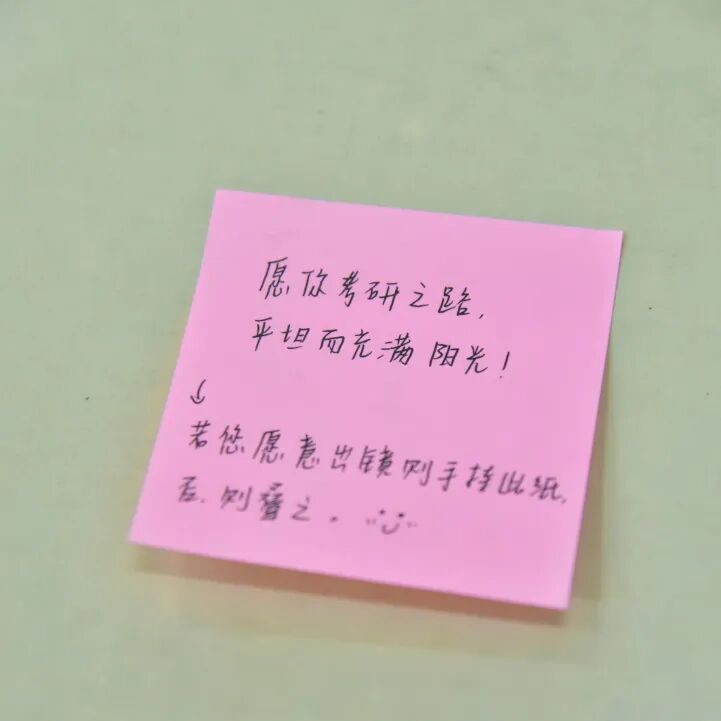 愿你考研之路,
平坦而充满阳光!
若您愿意出镜则手持此纸,
否则叠之.